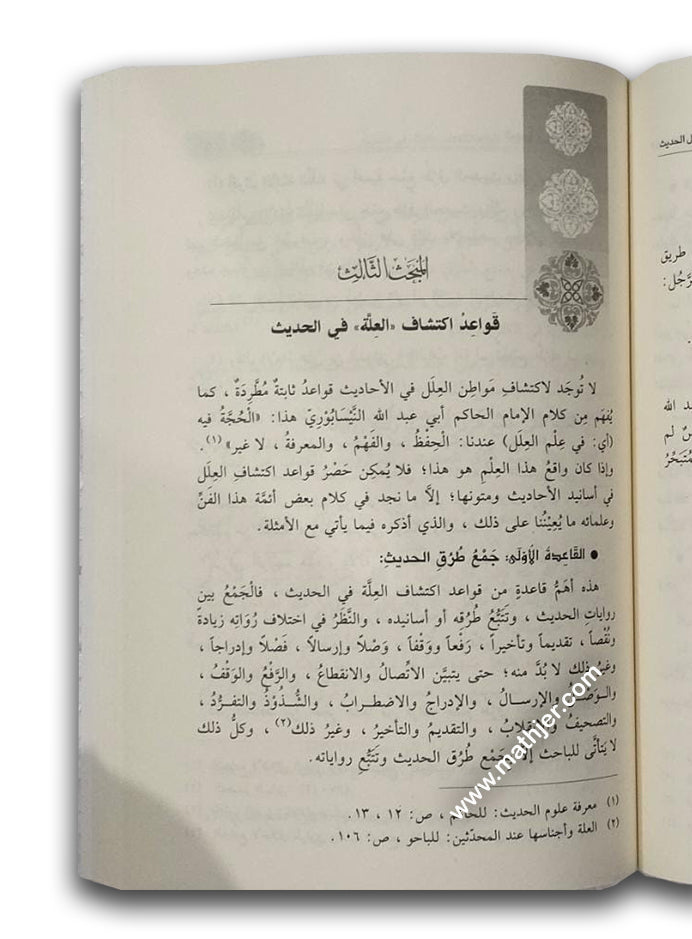 المبحث الثالث
قَواعِدُ اكتشاف «العِلَّة» في الحديث
لا تُوجَد لاكتشافِ مَواطِن العِلَل في الأحاديث قواعدُ ثابتةٌ مُطَّرِدَةٌ ، كما
يُفهَم مِن كلام الإمام الحاكم أبي عبد الله النَّيْسَابُوْرِيّ هذا: «الْحُجَّةُ فيه
(أي: في عِلْم العِلَل) عندنا: الْحِفْظُ ، والفَهْمُ ، والمعرفةُ ، لا غير» (١).
وإذا كان واقعُ هذا العِلْمِ هو هذا؛ فلا يُمكِن حَصْرُ قواعد اكتشافِ العِلَل
في أسانيد الأحاديث ومتونها؛ إلَّا ما نجد في كلام بعض أئمَّة هذا الفَنِّ
وعلمائه ما يُعِيْنُنا على ذلك ، والذي أذكره فيما يأتي مع الأمثلة.
● القَاعِدةُ الأُوْلَى: جَمْعُ طُرُقِ الحديثِ:
هذه أهَمُّ قاعدةٍ من قواعد اكتشاف العِلَّة في الحديث ، فالْجَمْعُ بين
رواياتِ الحديث ، وتَتَبُّعُ طُرُقِه أو أسانيده ، والنَّظَرُ في اختلاف رُوَاتِه زيادةً
ونُقْصاً ، تقديماً وتأخيراً ، رَفْعاً ووَقْفاً ، وَصْلاً وإرسالاً ، فَصْلاً وإدراجاً ،
وغيرُ ذلك لا بُدَّ منه؛ حتى يتبيَّن الاتِّصالُ والانقطاعُ ، والرَّفْعُ والوَقْفُ ،
والـوَصْـلُ والإرسـالُ ، والإدراجُ والاضـطـرابُ ، والشُّـذُوْذُ والتفـرُّدُ ،
والتصحيفُ والانقلابُ ، والتقديمُ والتأخيرُ ، وغيرُ ذلك(٢) ، وكلُّ ذلك
لا يَتأتَّى للباحث إلَّا بجَمْع طُرُق الحديث وتَتَبُّعِ رواياته.
(١) معرفة علوم الحديث: للحاكم ، ص: ١٢ ، ١٣.
(٢) العلة وأجناسها عند المحدِّثين: للباحو ، ص: ١٠٦.
www.mathjer.com
ل الحديث
طريق
رَّجُل:
د الله
نْ لم
مُتَبَحِّرُ